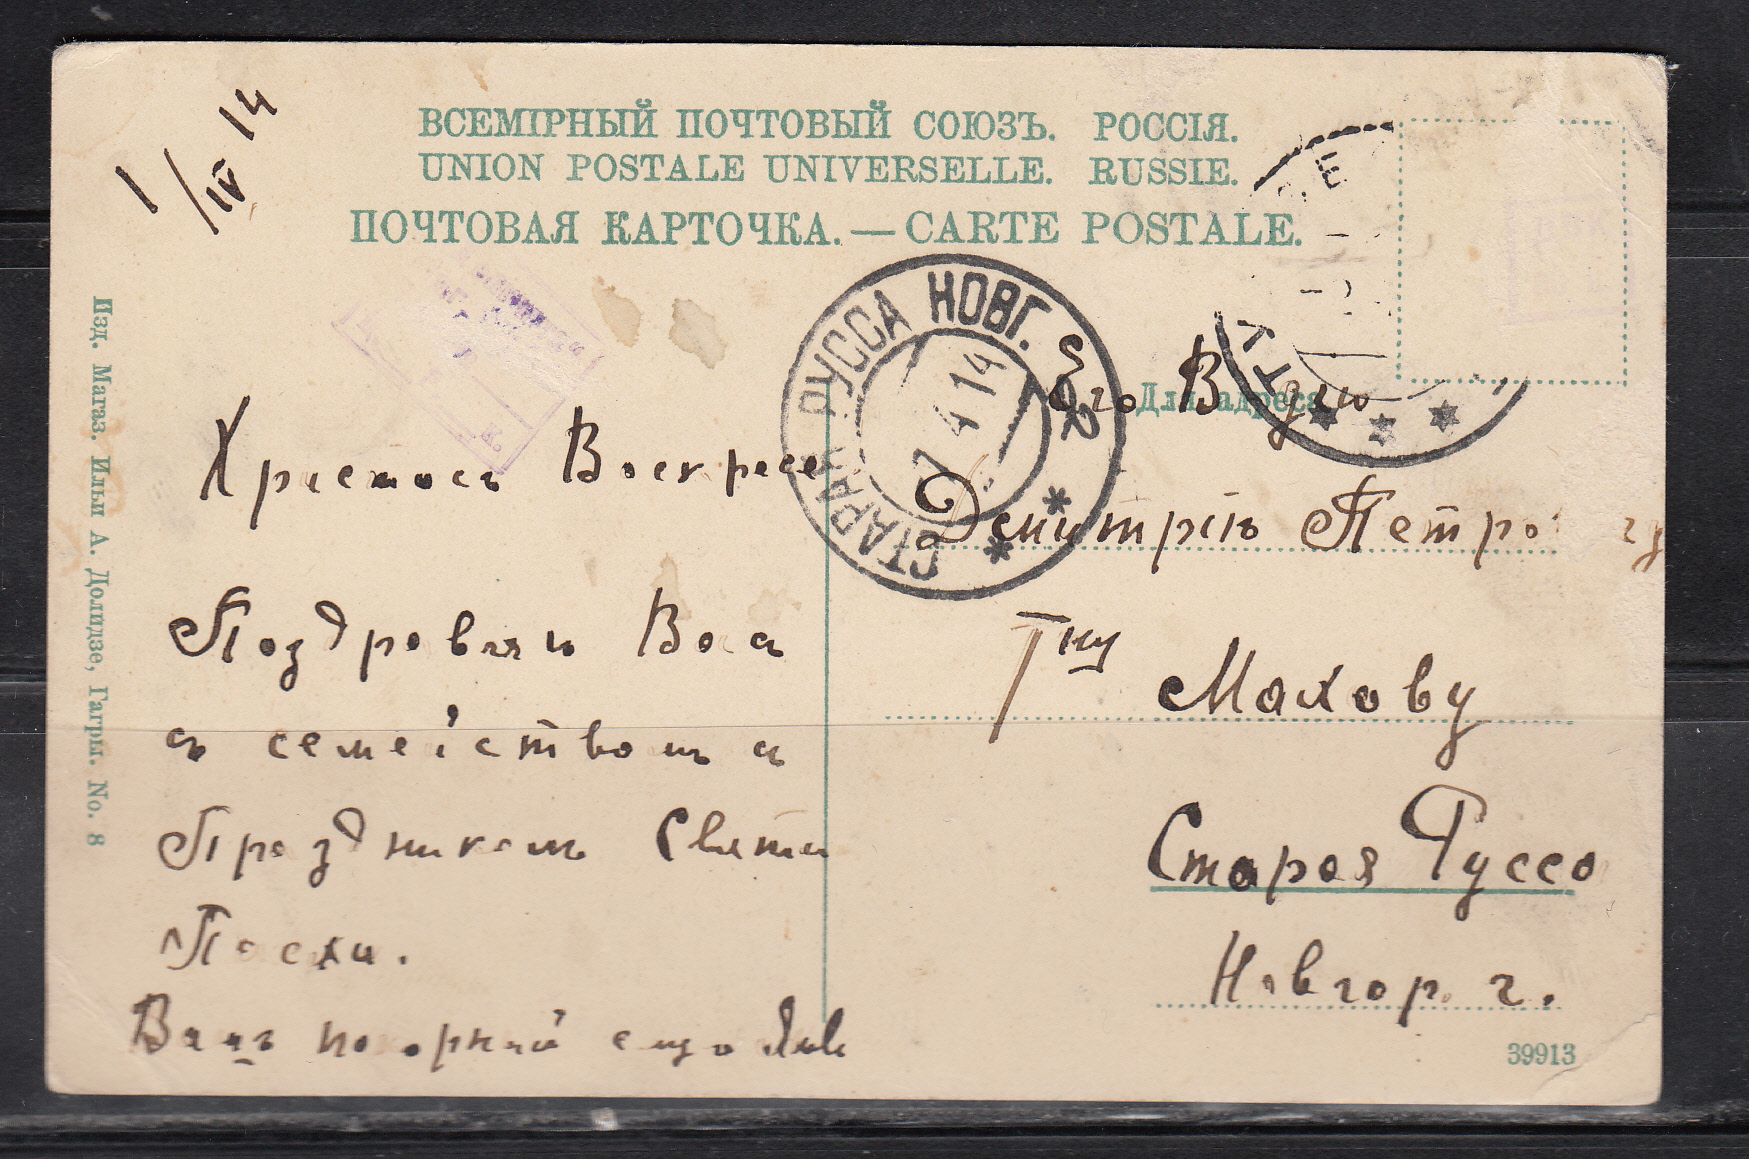 1/IV 14
ВСЕМІРНЫЙ ПОЧТОВЫЙ СОЮЗЪ. РОССІЯ.
UNION POSTALE UNIVERSELLE. RUSSIE.
ПОЧТОВАЯ КАРТОЧКА. — CARTE POSTALE.
Изд. Магаз. Ильи А. Долидзе, Гагры. No. 8
СТАРАЯ РУССА НОВГ.
7 4 14
Для адреса
Христосъ Воскресе
Поздровляю Вос
съ семействомъ и
Праздникомъ Святи
Посхи.
Вашъ покорный
Его В
Демитрію Петро
Гну Махову
Староя Руссо
Новгор. г.
39913